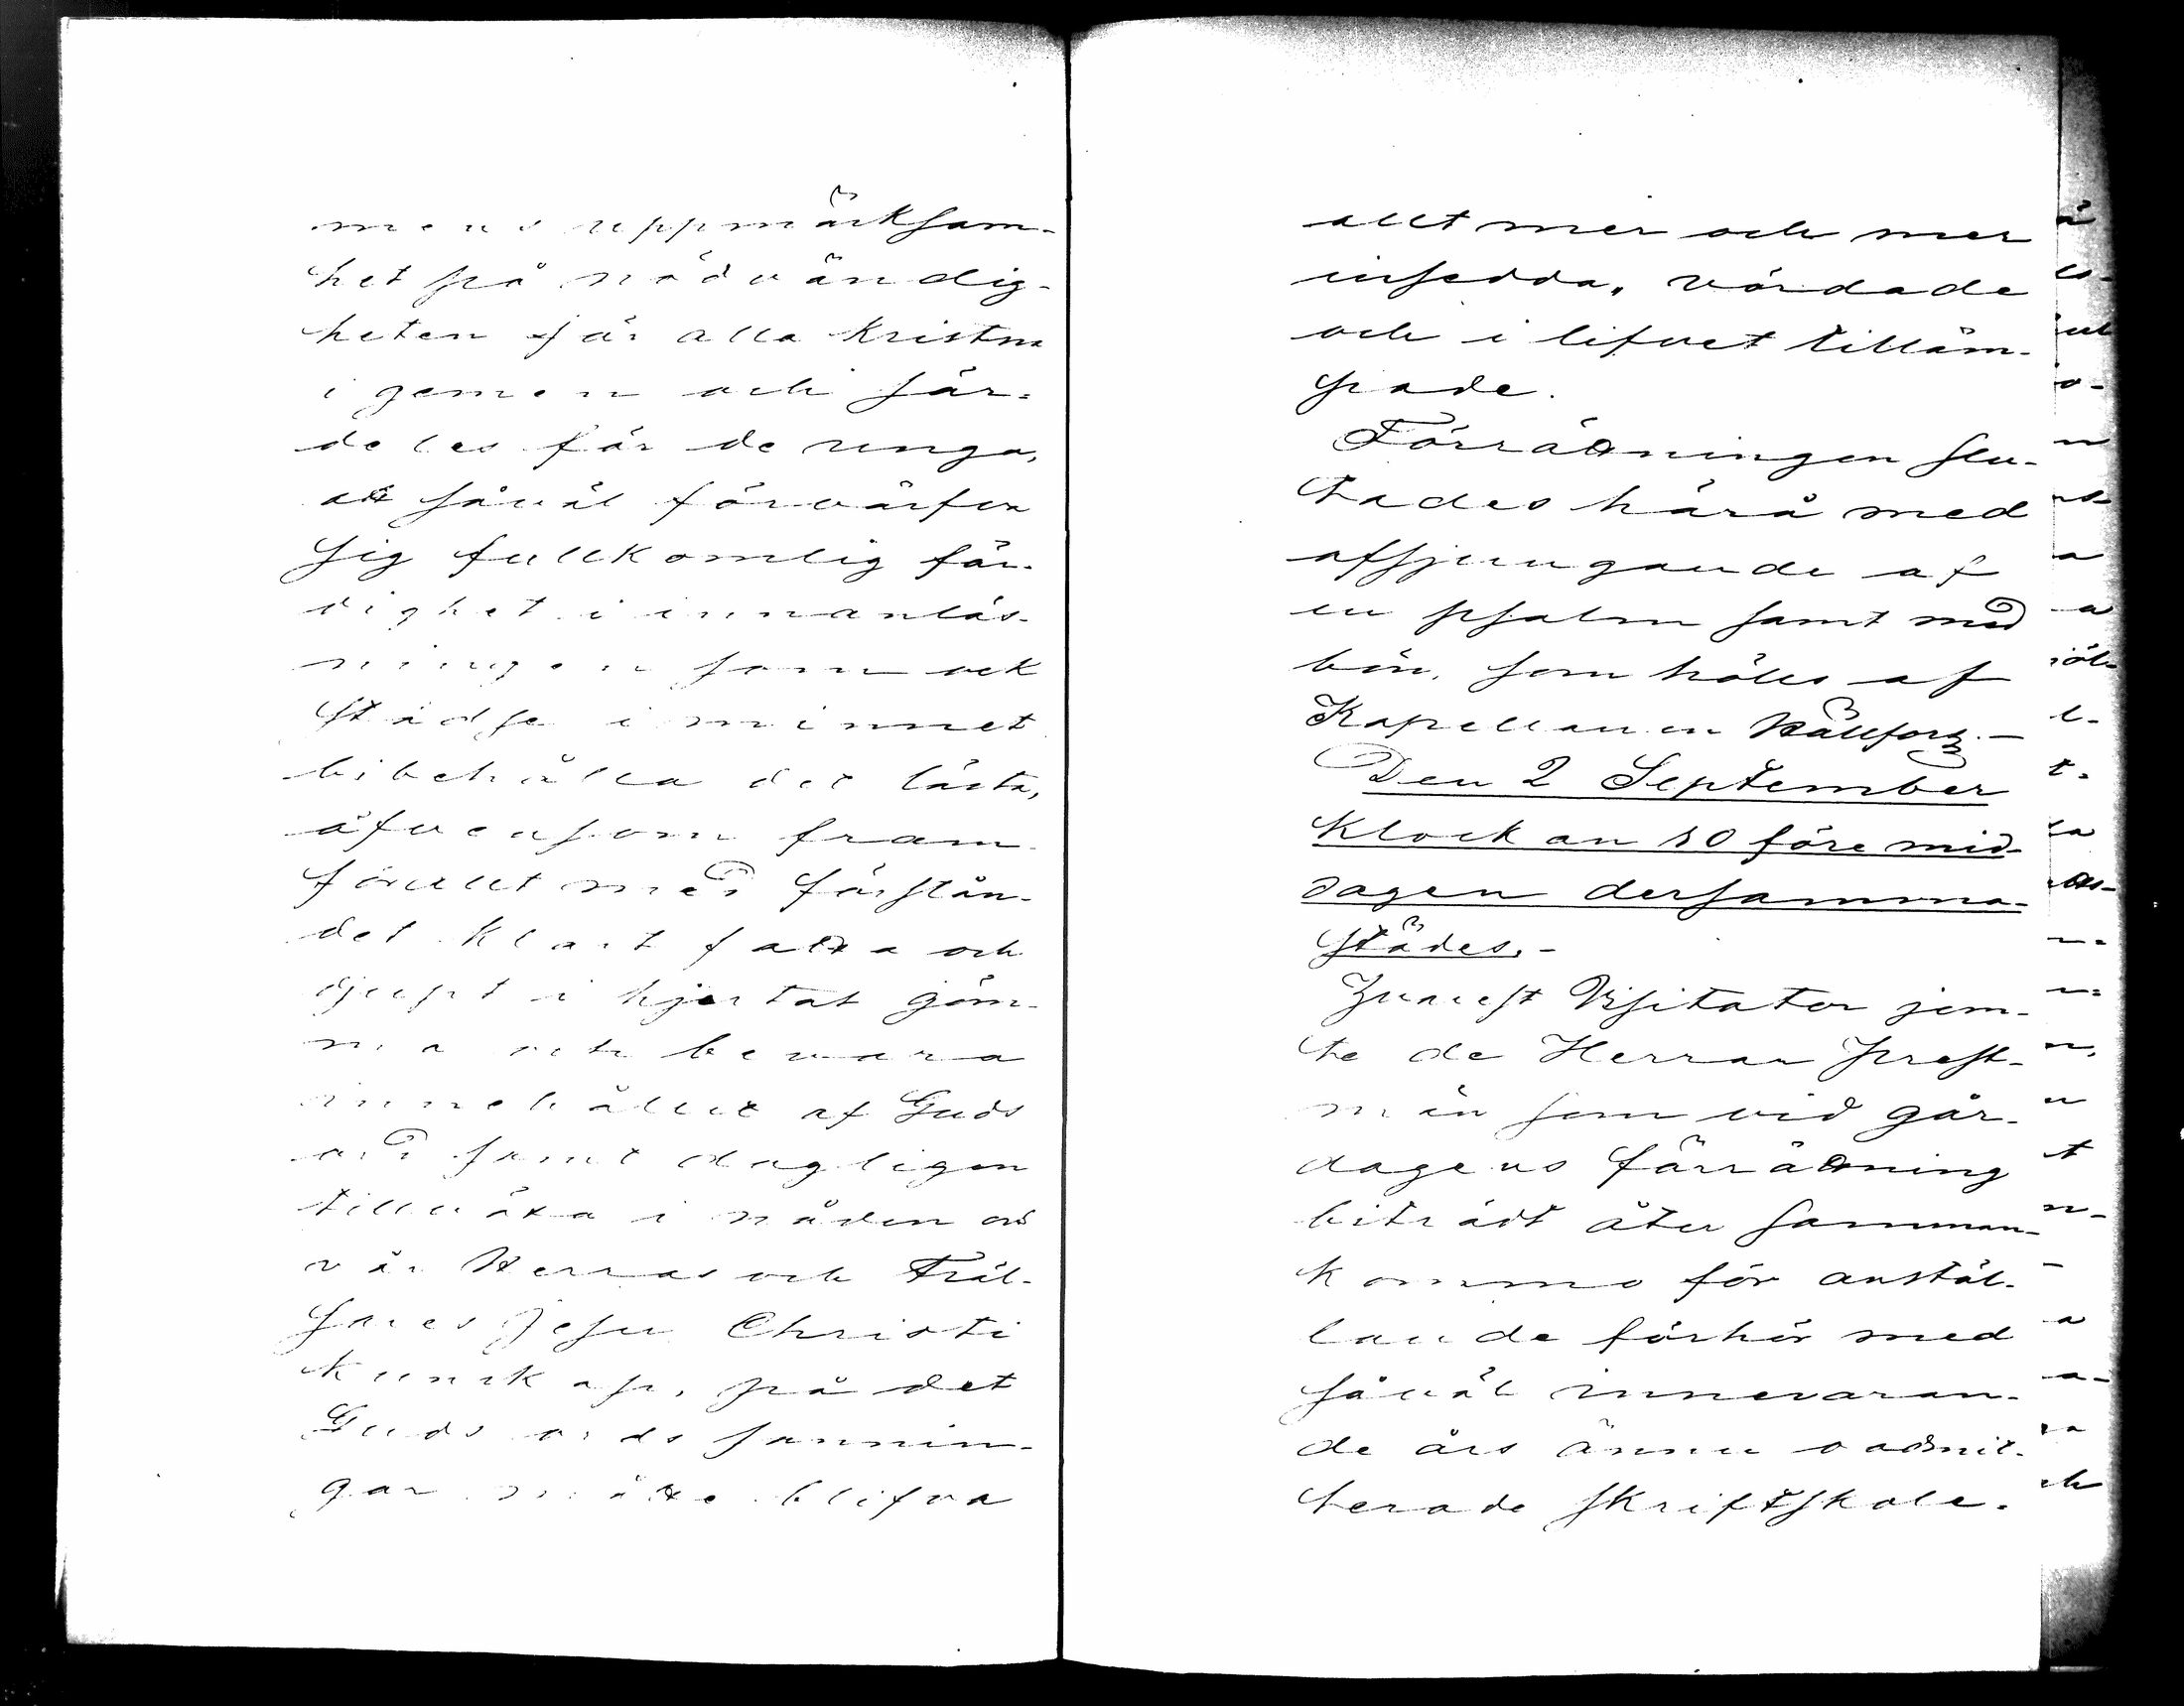 mens uppmärksam-
het på nödvändig-
heten för alla Kristna
i gemen och sär-
deles för de unga,
att såväl förvärfva
sig fullkomlig fär-
dighet i innanläs-
ningen som ock
städse i minnet
bibehålla det lästa,
äfvensom fram
förallt med förstån-
det klart fatta och
djupt i hjertat göm-
ma och bevara
innehållet af Guds
ord samt dagligen
tillväxa i nåden och
vår Herras och Fräl-
sares Jesu Christi
kunskap, på det
Guds ords sannin-
gar måtte blifva
allt mer och mer
insedda, vördade
och i lifvet tilläm-
pade.
Förrättningen slu-
tades härå med
afsjungande af
en psalm samt med
bön, som hölls af
Kapellanen Hällfors.-
Den 2 September
Klockan 10 före mid-
dagen dersamma-
städes.-
Visitator jem-
te de Herrar Prest-
män som vid går-
dagens förrättning
biträdt åter samman-
kommo för anstäl-
lande förhör med
såväl innevaran-
de års ännu oadmit-
terade skriftskole-